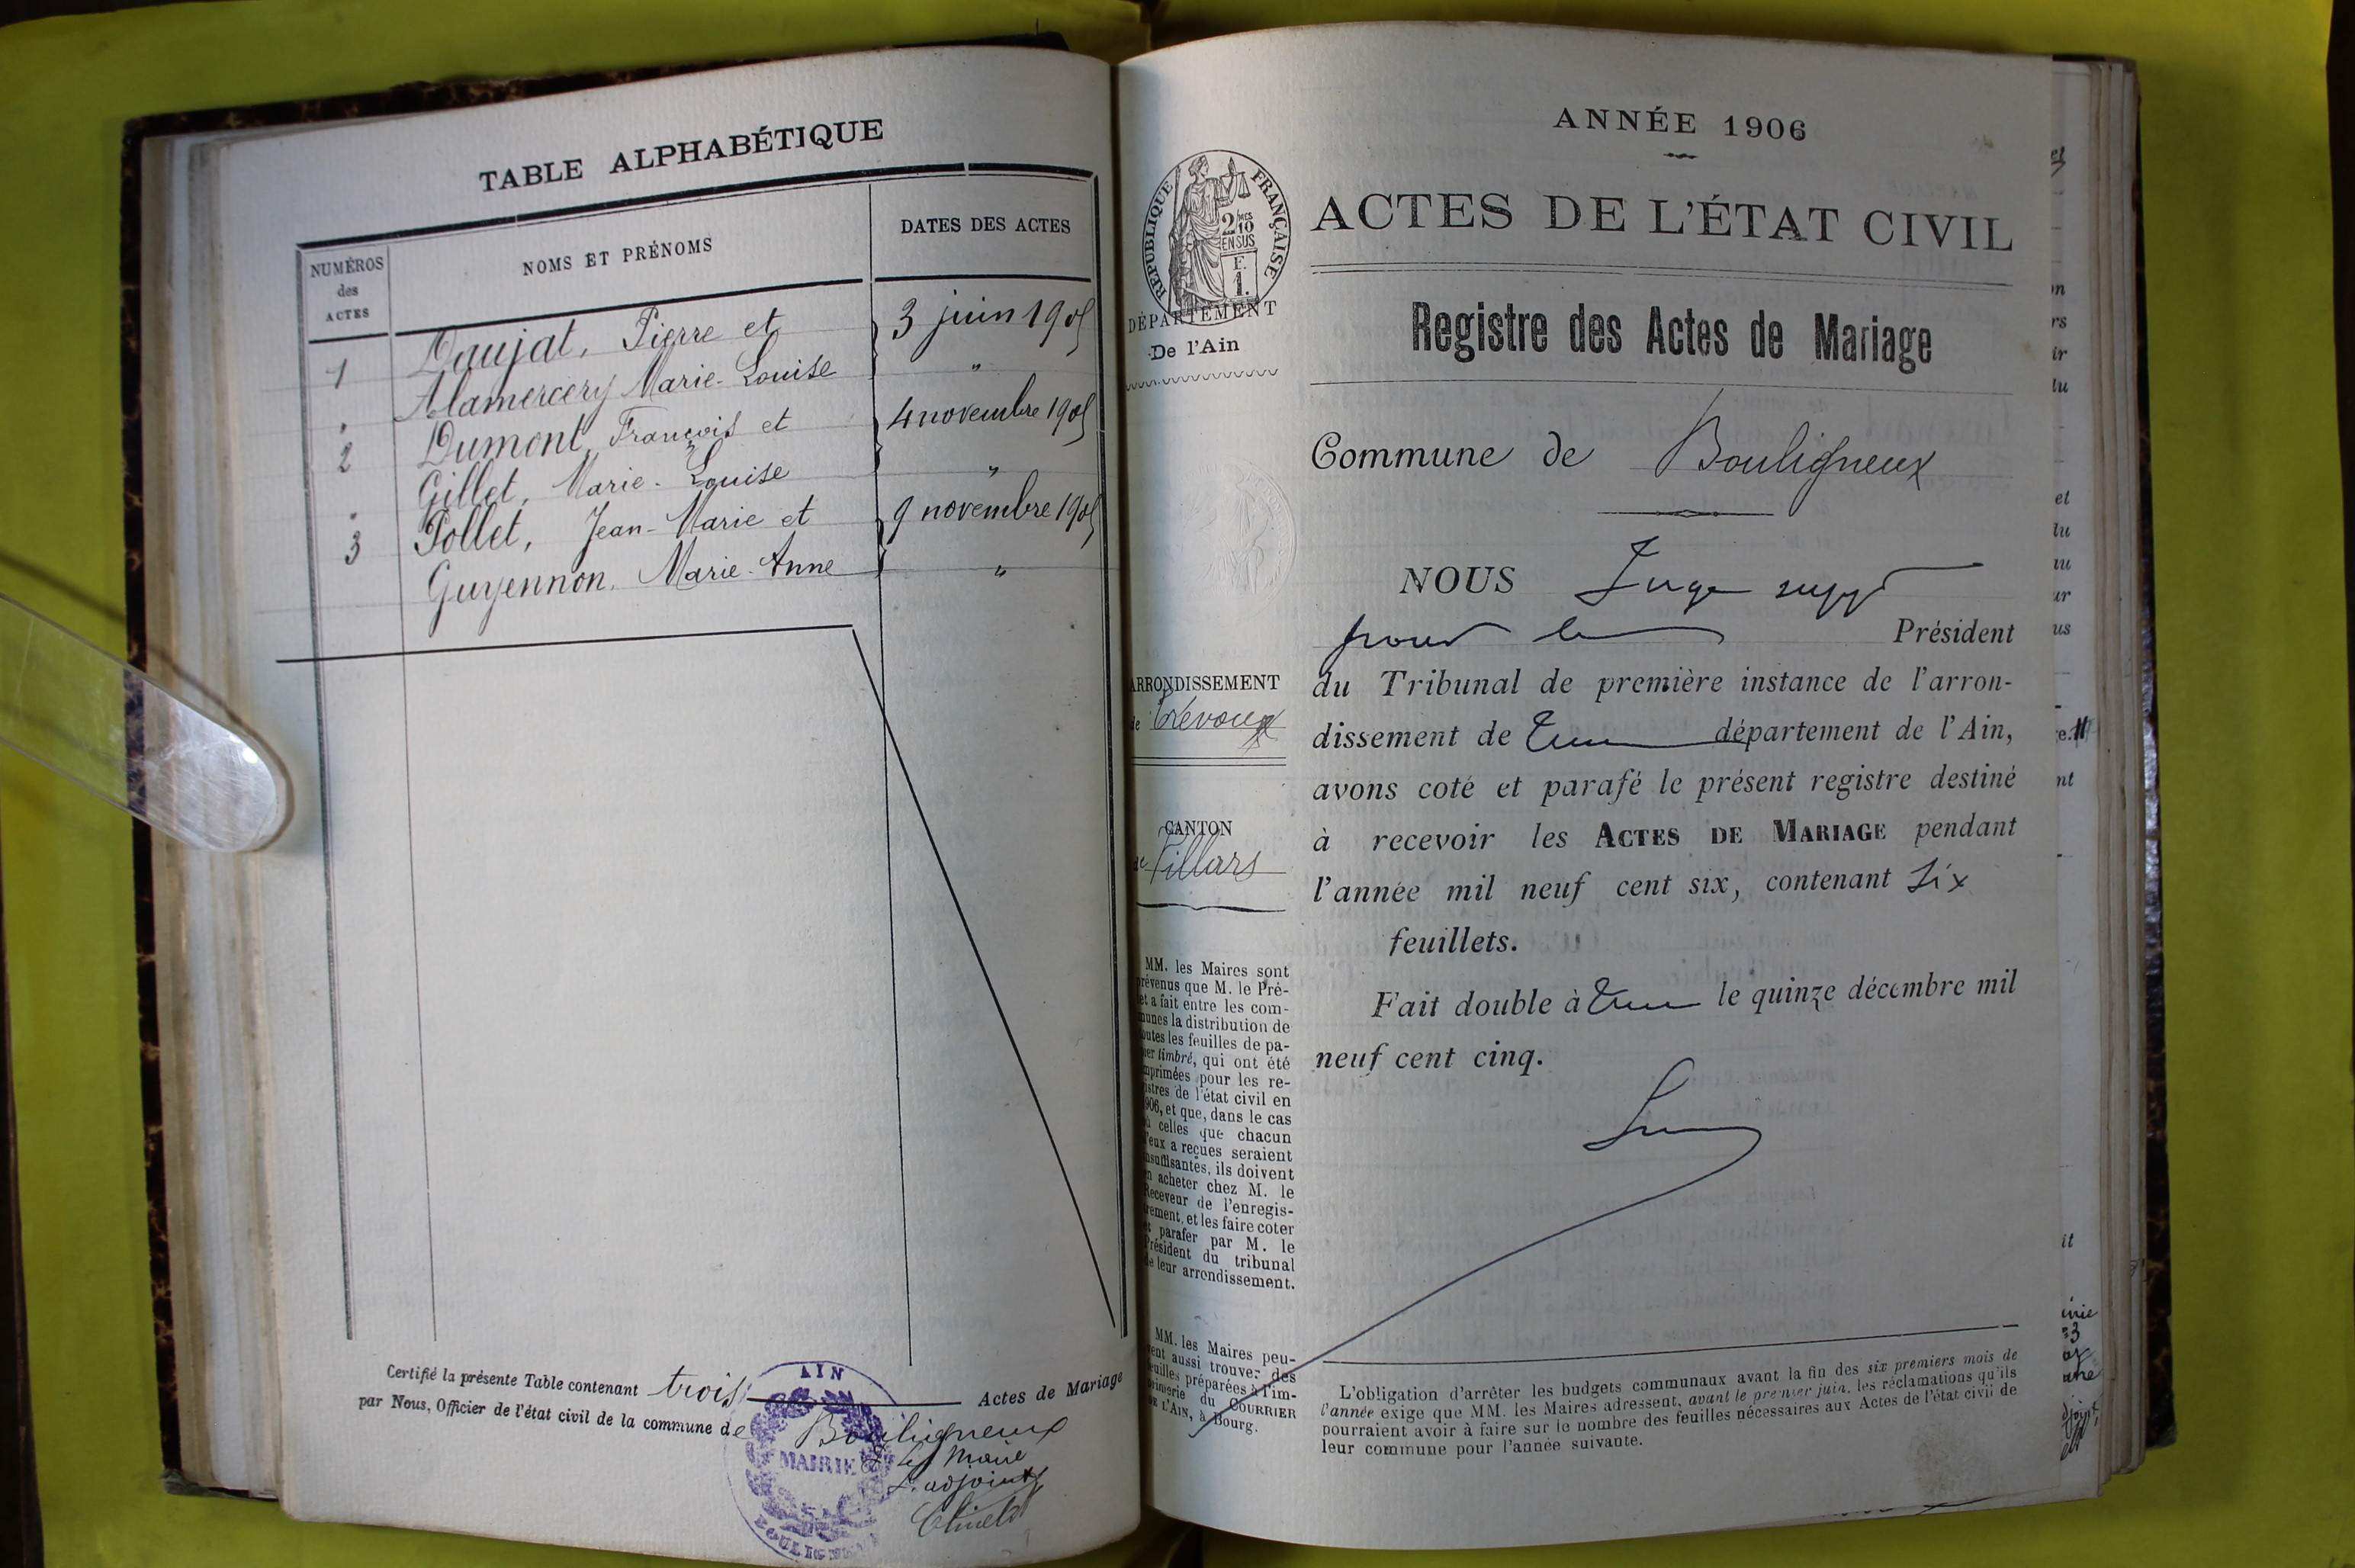 TABLE ALPHABÉTIQUE
NUMÉROS
des
ACTES
NOMS ET PRÉNOMS
DATES DES ACTES
1 Daujat, Pierre et 3 juin 1905
Alamercery Marie-Louise "
2 Dumont, François et 4 novembre 1905
Gillet, Marie-Louise "
3 Pollet, Jean-Marie et 9 novembre 1905
Guyennon, Marie-Anne "
Certifié la présente Table contenant trois Actes de Mariage
par Nous, Officier de l'état civil de la commune de Bouligneux
AIN
MAIRIE
Le Maire
L'adjoint
RÉPUBLIQUE FRANÇAISE
2/10 MES
EN SUS
F.
1.
DÉPARTEMENT
De l'Ain
ARRONDISSEMENT
de Trévoux
CANTON
de Villars
MM. les Maires sont
prévenus que M. le Pré-
et a fait entre les com-
munes la distribution de
outes les feuilles de pa-
er timbré, qui ont été
mprimées pour les re-
istres de l'état civil en
906, et que, dans le cas
ù celles que chacun
'eux a reçues seraient
nsuffisantes, ils doivent
n acheter chez M. le
Receveur de l'enregis-
rement, et les faire coter
t parafer par M. le
Président du tribunal
e leur arrondissement.
MM. les Maires peu-
ent aussi trouver des
euilles préparées à l'im-
primerie du COURRIER
DE L'AIN, à Bourg.
ANNÉE 1906
ACTES DE L'ÉTAT CIVIL
Registre des Actes de Mariage
Commune de Bouligneux
NOUS Juge supp
pour le Président
du Tribunal de première instance de l'arron-
dissement de département de l'Ain,
avons coté et parafé le présent registre destiné
à recevoir les ACTES DE MARIAGE pendant
l'année mil neuf cent six, contenant Six
feuillets.
Fait double à le quinze décembre mil
neuf cent cinq.
L'obligation d'arrêter les budgets communaux avant la fin des six premiers mois de
l'année exige que MM. les Maires adressent, avant le premier juin, les réclamations qu'ils
pourraient avoir à faire sur le nombre des feuilles nécessaires aux Actes de l'état civil de
leur commune pour l'année suivante.